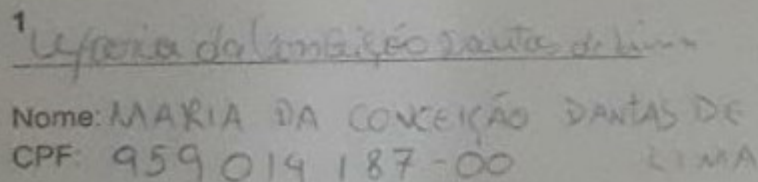 1 Maria da Conceição Dantas de Lima
Nome: MARIA DA CONCEIÇÃO DANTAS DE LIMA
CPF: 959 014 187-00